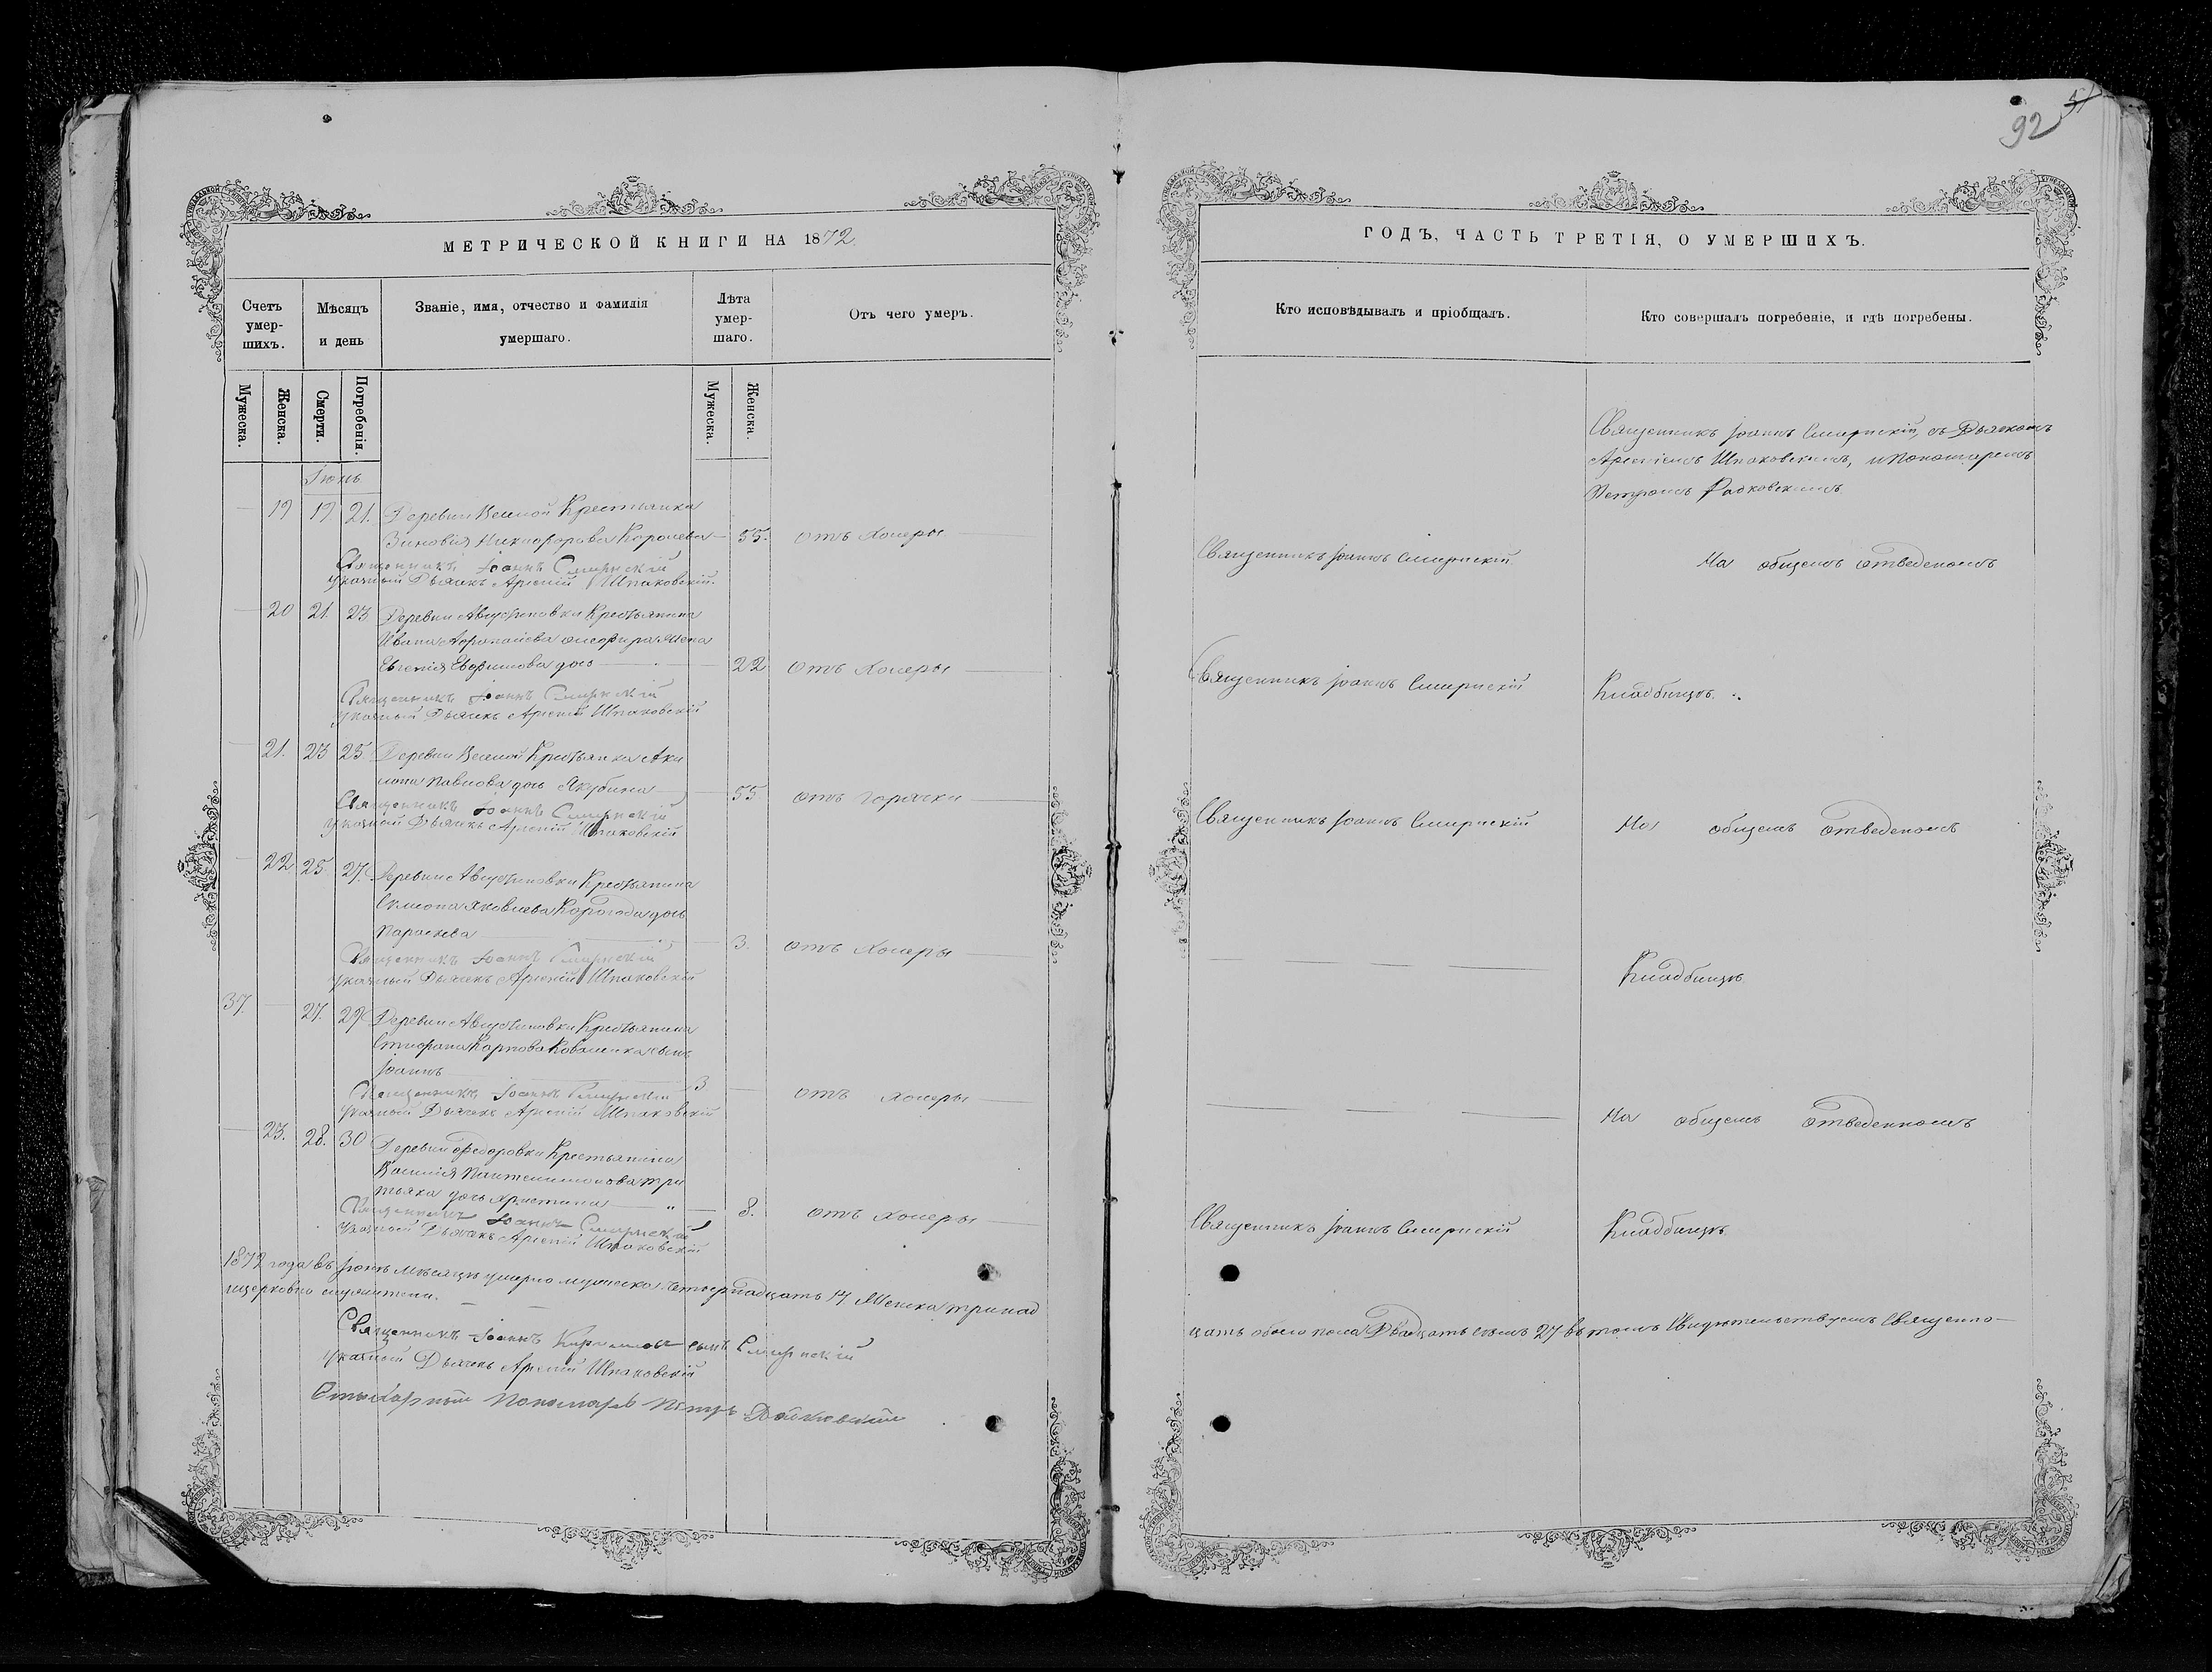 92
МЕТРИЧЕСКОЙ КНИГИ НА 1872.
Счетъ умер-шихъ.
Мѣсяцъ и день
Званіе, имя, отчество и фамилія умершаго.
Лѣта умер-шаго.
Отъ чего умеръ.
Мужеска.
Женска.
Смерти.
Погребенія.
Мужеска.
Женска.
Іюнь
19 19 21. Деревни Веселой Крестьянка
Зиновія Никифорова Королева 55. отъ холеры
Священникъ Іоаннъ Смирнскій
указный Дьячекъ Арсеній Шпаковскій.
20 21. 23 Деревни Августиновки Крестьянина
Ивана жена
Евгенія Евфимова дочь 22 отъ холеры
Священникъ Іоаннъ Смирнскій
указный Дьячекъ Арсеній Шпаковскій
21. 23 25 Деревни Веселой Крестьянка Аки
лина Павлова дочь Якубина 55 отъ горячки
Священникъ Іоаннъ Смирнскій
указный Дьячекъ Арсеній Шпаковскій
22 25 27. Деревни Августиновки Крестьянина
Яковлева дочь
Параскева 3. отъ холеры
Священникъ Іоаннъ Смирнскій
указный Дьячекъ Арсеній Шпаковскій
37. 27. 29 Деревни Августиновки Крестьянина
Карпова сынъ
Іоаннъ 3 отъ холеры
Священникъ Іоаннъ Смирнскій
указный Дьячекъ Арсеній Шпаковскій
23. 28. 30 Деревни Федоровки Крестьянина
Василія Пантелимонова Три
тьяка дочь Христина 8. отъ холеры
Священникъ Іоаннъ Смирнскій
указный Дьячекъ Арсеній Шпаковскій
1872 года въ Іюнѣ мѣсяцѣ умерло мужеска четырнадцать 14 Женска тринад
ицерковно служители.
Священникъ Іоаннъ сынъ Смирнскій
указный Дьячекъ Арсеній Шпаковскій
Пономарь Петръ
ГОДЪ, ЧАСТЬ ТРЕТІЯ, О УМЕРШИХЪ.
Кто исповѣдывалъ и пріобщалъ.
Кто совершалъ погребеніе, и гдѣ погребены.
Священникъ Іоаннъ Смирнскій, съ Дьячкомъ
Арсеніемъ Шпаковскимъ, и Пономаремъ
Петромъ
Священникъ Іоаннъ Смирнскій
На общемъ отведеномъ
Священникъ Іоаннъ Смирнскій
Кладбищѣ.
Священникъ Іоаннъ Смирнскій
На общемъ отведеномъ
Кладбищѣ
На общемъ отведенномъ
Священникъ Іоаннъ Смирнскій
Кладбищѣ.
цать обоего пола Двадцать семь 27 въ томъ Свидѣтельствуемъ Священно-